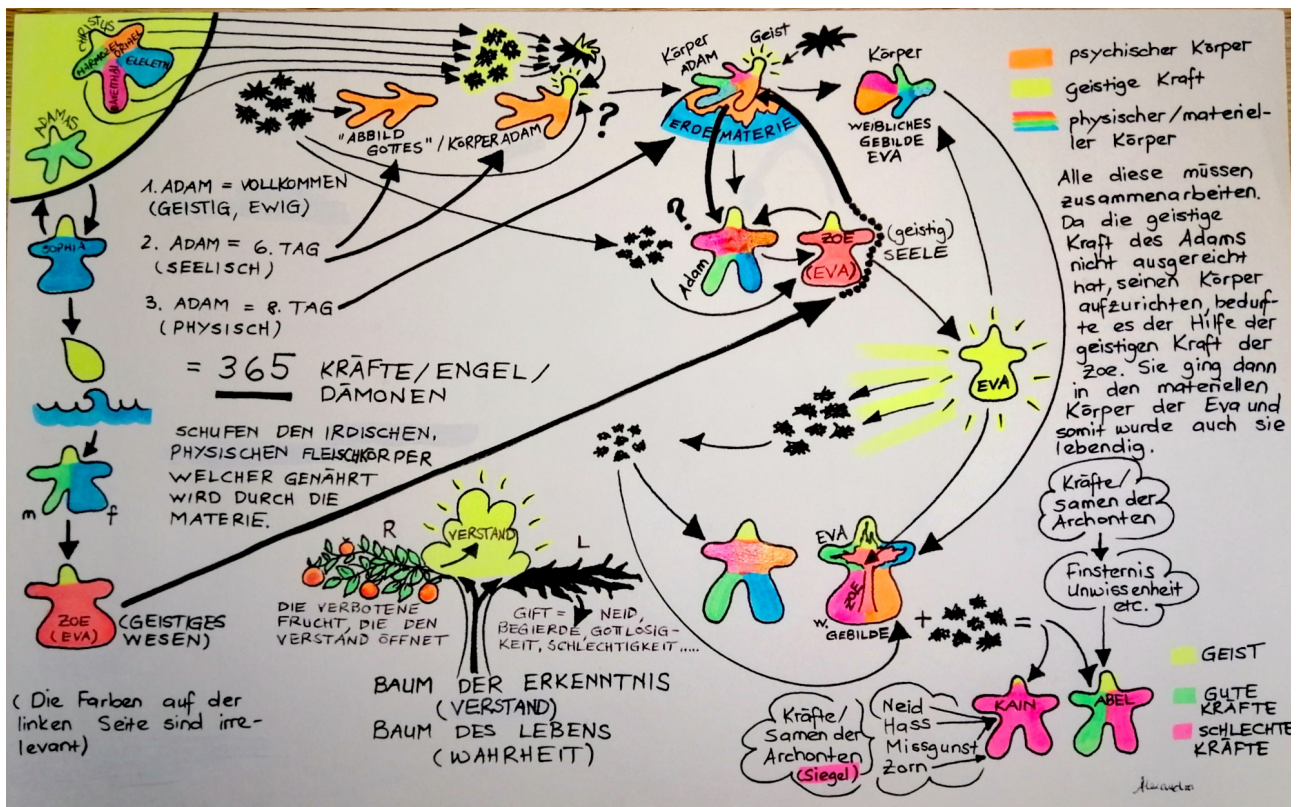 CHRISTUS
HARMOZEL
ORIAEL
DAVEITHAI
ELELETH
ADAMAS
SOPHIA
m
f
ZOE
(EVA)
(GEISTIGES
WESEN)
( Die Farben auf der
linken Seite sind irre-
levant)
"ABBILD
GOTTES" / KÖRPER ADAM
?
1. ADAM = VOLLKOMMEN
(GEISTIG, EWIG)
2. ADAM = 6. TAG
(SEELISCH)
3. ADAM = 8. TAG
(PHYSISCH)
= 365 KRÄFTE/ENGEL/
DÄMONEN
SCHUFEN DEN IRDISCHEN,
PHYSISCHEN FLEISCHKÖRPER
WELCHER GENÄHRT
WIRD DURCH DIE
MATERIE.
R
VERSTAND
L
DIE VERBOTENE
FRUCHT, DIE DEN
VERSTAND ÖFFNET
GIFT = NEID,
BEGIERDE, GOTTLOSIG-
KEIT, SCHLECHTIGKEIT.....
BAUM DER ERKENNTNIS
(VERSTAND)
BAUM DES LEBENS
(WAHRHEIT)
Körper
ADAM
Geist
ERDE/MATERIE
Körper
WEIBLICHES
GEBILDE
EVA
?
Adam
ZOE
(EVA)
(geistig)
SEELE
EVA
EVA
ZOE
W.
GEBILDE
+
=
psychischer Körper
geistige Kraft
physischer/materiel-
ler Körper
Alle diese müssen
zusammenarbeiten.
Da die geistige
Kraft des Adams
nicht ausgereicht
hat, seinen Körper
aufzurichten, bedurf-
te es der Hilfe der
geistigen Kraft der
Zoe. Sie ging dann
in den materiellen
Körper der Eva und
somit wurde auch sie
lebendig.
Kräfte/
Samen der
Archonten
Finsternis
Unwissenheit
etc.
KAIN
ABEL
Kräfte/
Samen der
Archonten
(Siegel)
Neid
Hass
Missgunst
Zorn
GEIST
GUTE
KRÄFTE
SCHLECHTE
KRÄFTE